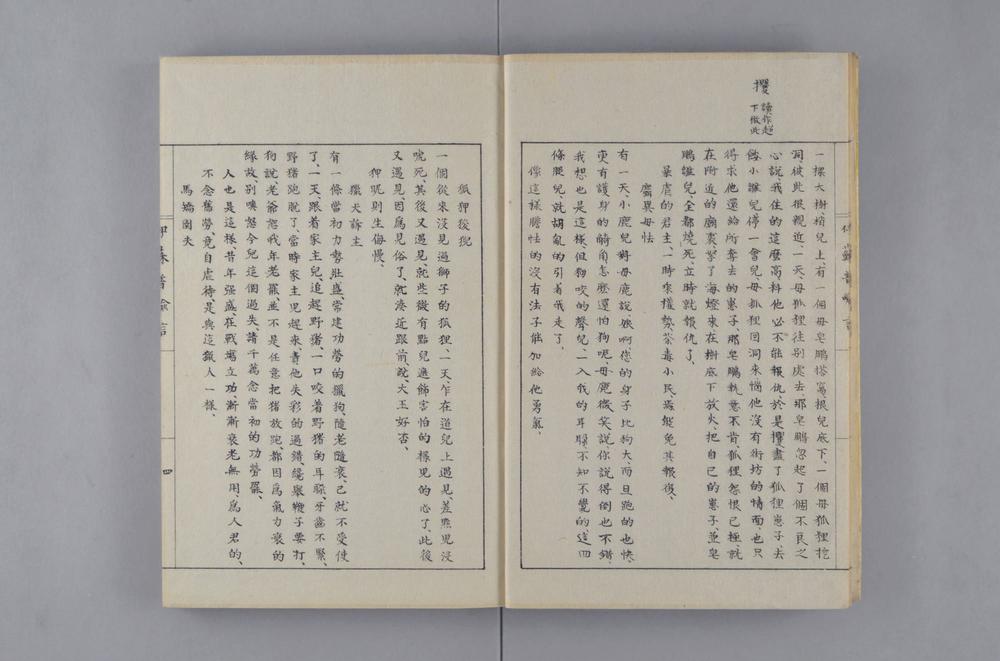 攫
讀作趙
下倣此
一棵大樹、梢兒上、有一個母皂鵰搭窩、根兒底下、一個母狐狸挖
洞彼此很親近、一天、母狐狸往別處去、那皂鵰忽起了個不良之
心說我住的這麼高料他必不能報仇於是攫盡了狐狸崽子去
餧小雛兒停一會兒母狐狸回洞来惱他沒有街坊的情面、也只
得求他還給所奪去的崽子、那皂鵰執意不肯、狐狸怨恨已極就
在附近的廟裏、拏了海燈来在樹底下放火、把自己的崽子、並皂
鵰雛兒全都燒死、立時就報仇了、
暴虐的君主、一時乘權勢荼毒小民、焉能免其報復、
麛異母怯
有一天小鹿兒對母鹿說娘啊您的身子比狗大而且跑的也快、
更有護身的犄角怎麼還怕狗呢、母鹿微笑說你說得倒也不錯、
我想也是這樣、但狗咬的聲兒、一入我的耳朶不知不覺的這四
條腿兒、就胡亂的引者我走了、
像這樣膽怯的沒有法子能加給他勇氣、
狐狎狻猊
一個從來沒見過獅子的狐狸、一天、乍在道兒上遇見、差點兒沒
唬死、其後又遇見、就些微有點兒遮飾害怕的樣兒的心了、此後
又遇見、因爲見俗了、就湊近跟前、說、大王好否、
狎昵則生侮慢、
獵犬訴主
有一條當初力勢壯盛、常建功勞的獵狗、隨老隨衰、已就不受使
了、一天跟着家主兒、追趕野猪、一口咬着野猪的耳朶、牙齒不緊、
野猪跑脫了、當時家主兒趕來、責他失彩的過錯、纔舉鞭子要打、
狗說老爺恕我年老罷並不是任意把猪放跑、都因爲氣力衰的
緣故、別嗔怒今兒這個過失、請千萬念當初的功勞罷、
人也是這樣、昔年强盛在戰塲立功、漸漸衰老無用、爲人君的、
不念舊勞、竟自虐待、是與這獵人一樣、
馬嬌圉夫
四